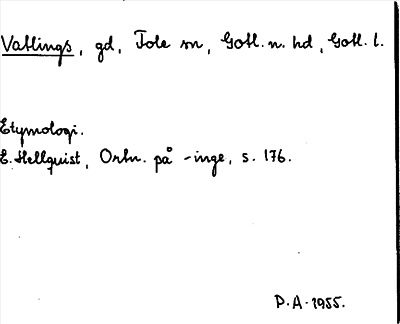 Vatlings, gd, Fole sn, Gotl. n. hd, Gotl. l.
Etymologi.
E. Hellquist, Ortn. på -inge, s. 176.
P.A. 1955.